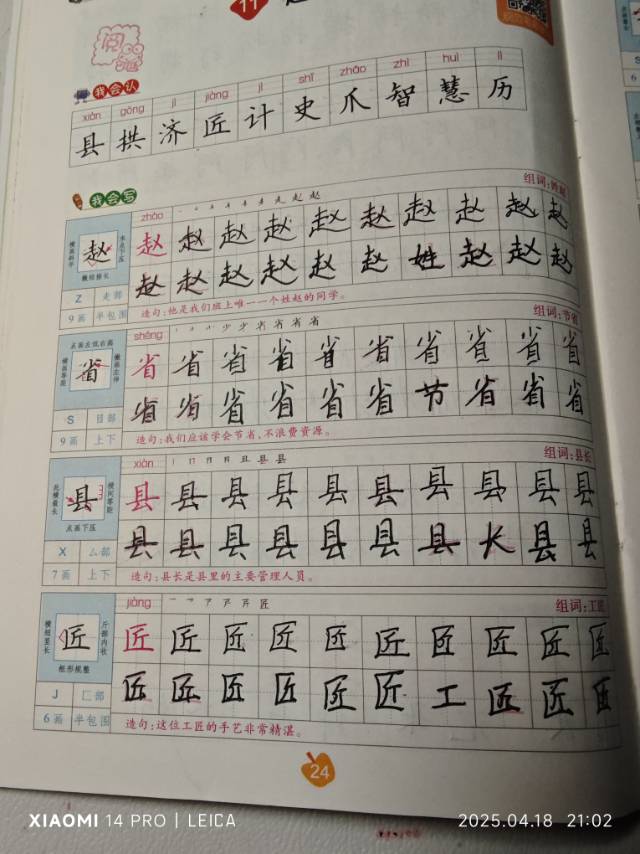 11
阅
我会认
xiàn gǒng jì jiàng jì shǐ zhǎo zhì huì lì
县 拱 济 匠 计 史 爪 智 慧 历
我会写
组词:姓赵
zhào
赵 赵 赵 赵 赵 赵 赵 赵 赵 赵
赵 赵 赵 赵 赵 赵 姓 赵 赵 赵
Z 走部
9画 半包围
造句:他是我们班上唯一一个姓赵的同学。
组词:节省
shěng
省 省 省 省 省 省 省 省 省 省
省 省 省 省 省 省 节 省 省 省
点画左低右高
S 目部
9画 上下
造句:我们应该学会节省,不浪费资源。
组词:县长
xiàn
县 县 县 县 县 县 县 县 县 县
县 县 县 县 县 县 县 长 县 县
点画下压
X 厶部
7画 上下
造句:县长是县里的主要管理人员。
组词:工匠
jiàng
匠 匠 匠 匠 匠 匠 匠 匠 匠 匠
匠 匠 匠 匠 匠 匠 工 匠 匠 匠
框形规整
J 匚部
6画 半包围
造句:这位工匠的手艺非常精湛。
24
XIAOMI 14 PRO | LEICA
2025.04.18 21:02